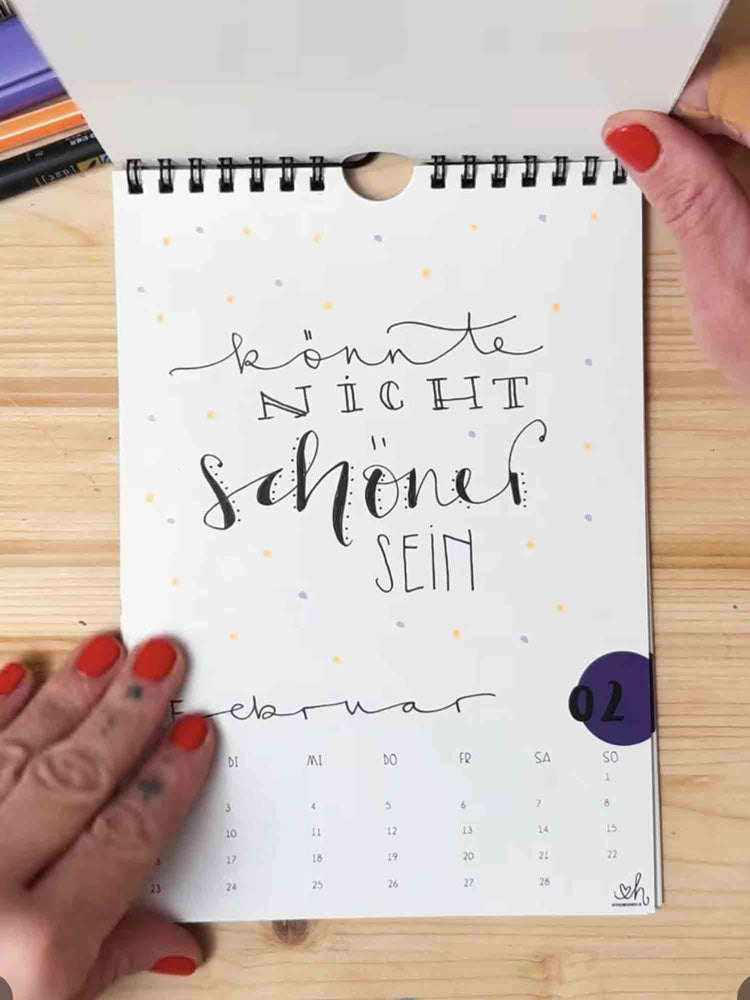 könnte
NICHT
schöner
SEIN
Februar 02
DI MI DO FR SA SO
1
3 4 5 6 7 8
10 11 12 13 14 15
17 18 19 20 21 22
23 24 25 26 27 28